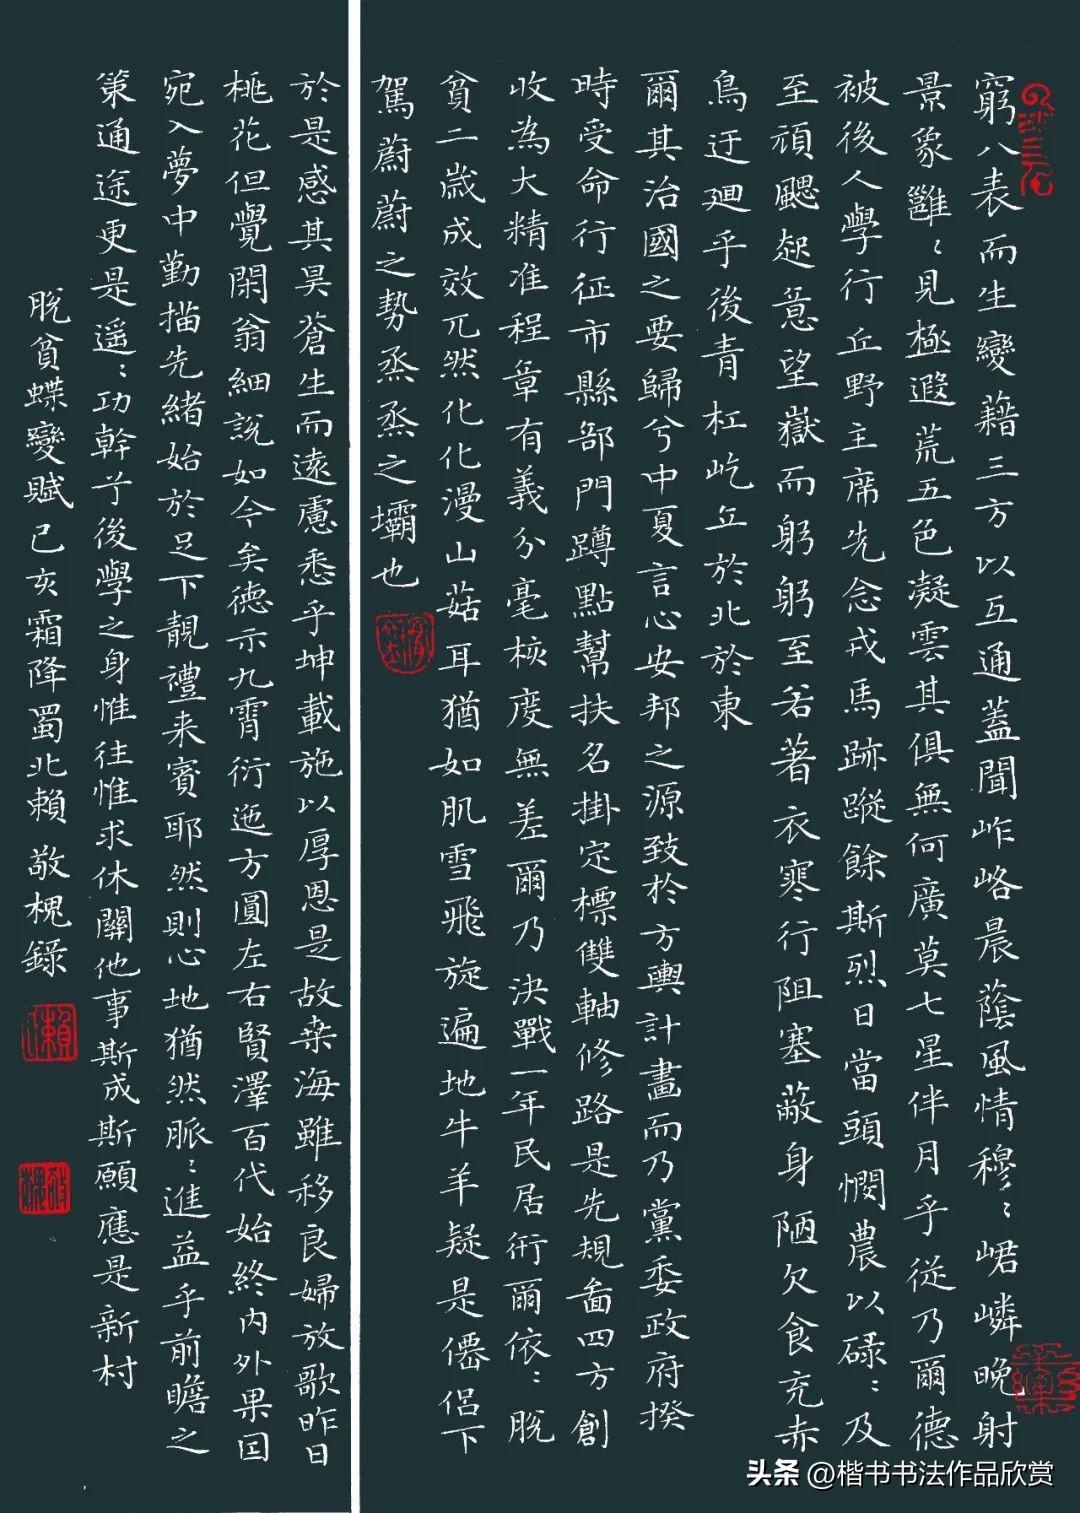 窮八表而生變藉三方以互通蓋聞岞峈晨蔭風情穆〻峮嶙晚射
景象雝〻見極遐荒五色凝雲其俱無何廣莫七星伴月乎從乃爾德
被後人學行丘野主席先念戎馬跡蹤餘斯烈日當頭憫農以碌〻及
至頑颸趁意望嶽而躬躬至若著衣寒行阻塞蔽身陋欠食充赤
鳥迂迴乎後青杠屹立於北於東
爾其治國之要歸兮中夏言心安邦之源致於方輿計畫而乃黨委政府揆
時受命行征市縣部門蹲點幫扶名掛定標雙軸修路是先規畵四方創
收為大精准程章有義分毫核度無差爾乃決戰一年民居衎爾依〻脫
貧二歲成效兀然化化漫山菇耳猶如肌雪飛旋遍地牛羊疑是僊侶下
駕蔚蔚之勢烝烝之壩也
於是感其昊蒼生而遠慮悉乎坤載施以厚恩是故桒海雖移良婦放歌昨日
桃花但覺閑翁細說如今矣德示九霄衍迤方圓左右賢澤百代始終內外果囯
宛入夢中勤描先緒始於足下靚禮来賓耶然則心地猶然脈〻進益乎前瞻之
策通途更是遥〻功幹兮後學之身惟往惟求休關他事斯成斯願應是新村
脫貧蝶變賦己亥霜降蜀北賴敬槐錄
頭条@楷书书法作品欣赏